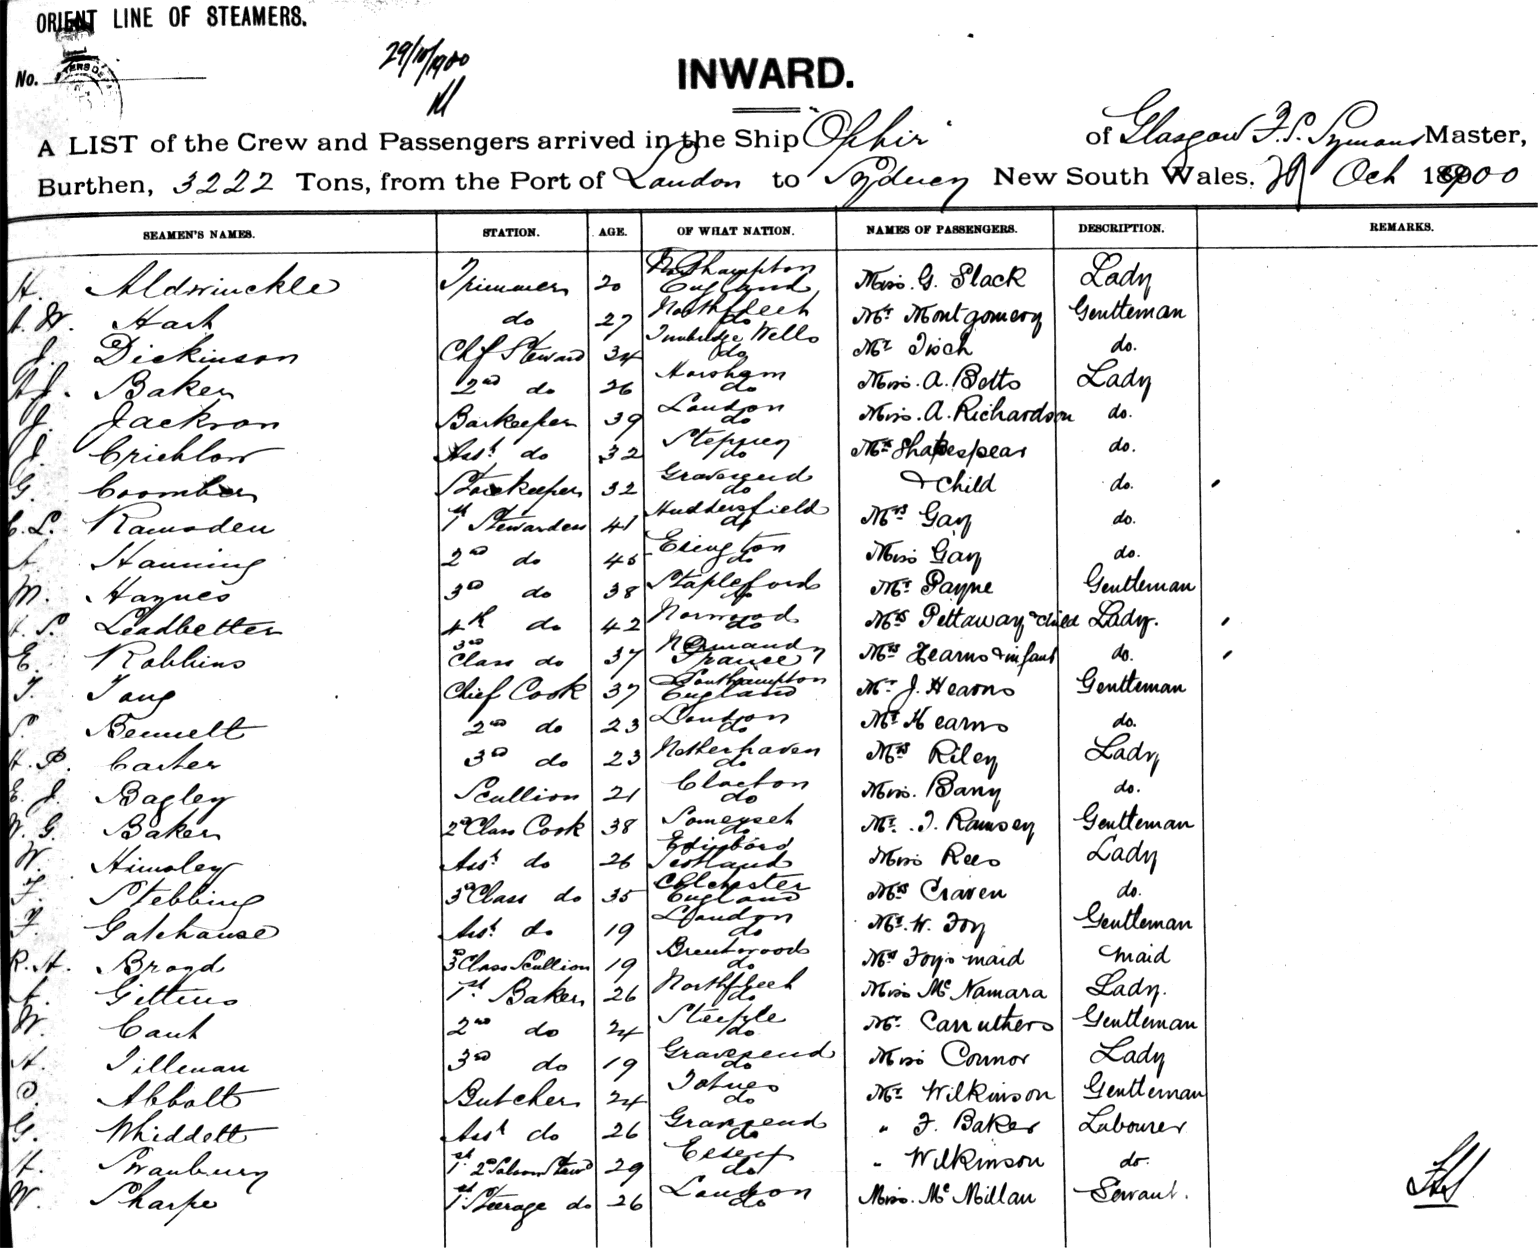 ORIENT LINE OF STEAMERS.
No.
29/10/1900
INWARD.
A LIST of the Crew and Passengers arrived in the Ship "Ophir" of Glasgow F. S. Symons Master,
Burthen, 3222 Tons, from the Port of London to Sydney New South Wales. 29 Oct 1900
SEAMEN'S NAMES. STATION. AGE. OF WHAT NATION. NAMES OF PASSENGERS. DESCRIPTION. REMARKS.
H. Aldwinckle Trimmer 20 Northampton England Miss. G. Slack Lady
W. Hart do 27 Northfleet do Mr Montgomery Gentleman
J. Dickinson Chf Steward 34 Tunbridge Wells do Mr Tisch do.
J. Baker 2nd do 26 Horsham do Miss. A. Betts Lady
J. Jackson Barkeeper 39 London do Miss. A. Richardson do.
J. Crichlow Asst do 32 Stepney do Mrs Shakespear do.
G. Coomber Storekeeper 32 Gravesend do & Child do.
C. L. Ramsden 1st Stewardess 41 Huddersfield do Mrs Gay do.
Hanning 2nd do 45 do Miss Gay do.
M. Haynes 3rd do 38 Stapleford do Mr Payne Gentleman
S. Leadbetter 4th do 42 Norwood do Mrs Pettaway & child Lady.
E. Robbins 3rd Class do 37 Normandy France Mrs Hearns & infant do.
T. Tong Chief Cook 37 Southampton England Mr J. Hearns Gentleman
S. Bennett 2nd do 23 London do Mr Hearns do.
H. P. Carter 3rd do 23 Netherhaven do Mrs Riley Lady
E. J. Bagley Scullion 21 Clacton do Miss. Barry do.
W. G. Baker 2nd Class Cook 38 Somerset do Mr. J. Ramsey Gentleman
W. Himsley Asst do 26 Edinboro Scotland Miss Rees Lady
F. Stebbing 3rd Class do 35 Colchester England Mrs Craven do.
F. Gatehouse Asst. do 19 London do Mr. W. Foy Gentleman
R. H. Broyd 3 Class Scullion 19 Brentwood do Mrs Foy's maid Maid
Gittens 1st. Baker 26 Northfleet do Miss McNamara Lady.
W. Cant 2nd do 24 Steeple do Mr. Carruthers Gentleman
A. Tilleman 3rd do 19 Gravesend do Miss Connor Lady
Abbott Butcher 24 Totnes do Mr. Wilkinson Gentleman
G. Whiddett Asst do 26 Gravesend do " F. Baker Labourer
A. Swanbury 1st 2nd Saloon Stewd 29 Essex do " Wilkinson do.
W. Sharpe 1st Steerage do 26 London do Miss. McMillan Servant.